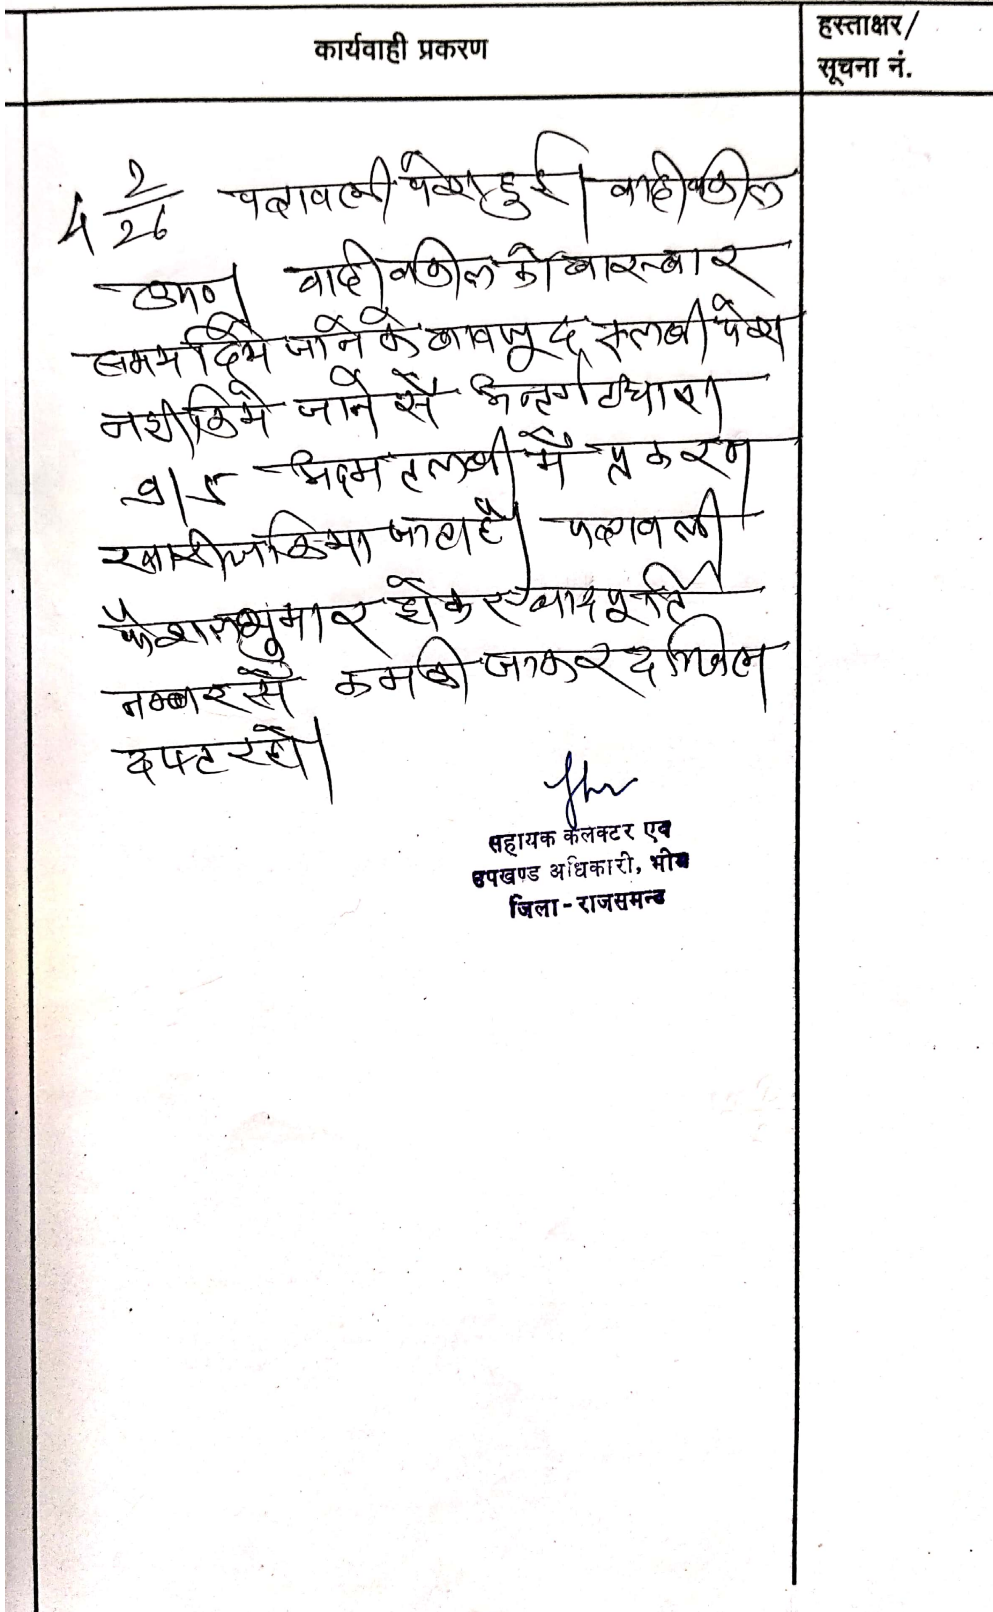 कार्यवाही प्रकरण
हस्ताक्षर/
सूचना नं.
4 2/26 पत्रावली पेश हुई। वादी वकील
उप०। वादी वकील को बार-बार
समय दिये जाने के बावजुद तलबी पेश
नही किये जाने से अन्तर्गत धारा
9/5 अदम तलबी में प्रकरण
खारीज किया जाता है। पत्रावली
फैशलशुमार होकर बाद पूर्ति
नम्बर से कम की जाकर दाखिल
दफ्तर हो।
सहायक कलक्टर एवं
उपखण्ड अधिकारी, भीम
जिला-राजसमन्द